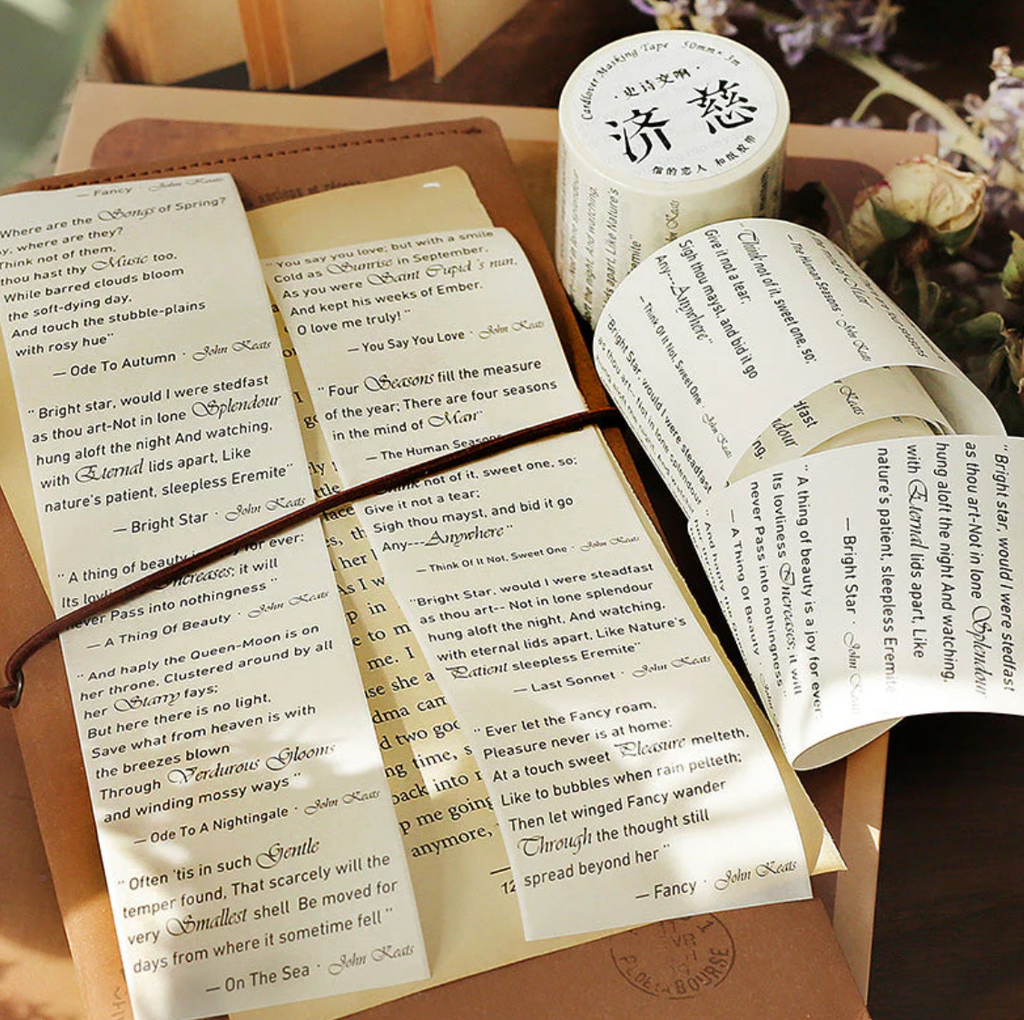 — Fancy · John Keats
Where are the Songs of Spring?
where are they?
Think not of them,
thou hast thy Music too,
While barred clouds bloom
the soft-dying day,
And touch the stubble-plains
with rosy hue"
— Ode To Autumn · John Keats
"Bright star, would I were stedfast
as thou art-Not in lone Splendour
hung aloft the night And watching,
with Eternal lids apart, Like
nature's patient, sleepless Eremite"
— Bright Star · John Keats
"A thing of beauty is a joy for ever:
Its loveliness Increases; it will
never Pass into nothingness"
— A Thing Of Beauty · John Keats
"And haply the Queen-Moon is on
her throne, Clustered around by all
her Starry fays;
But here there is no light,
Save what from heaven is with
the breezes blown
Through Verdurous Glooms
and winding mossy ways"
— Ode To A Nightingale · John Keats
"Often 'tis in such Gentle
temper found, That scarcely will the
very Smallest shell Be moved for
days from where it sometime fell"
— On The Sea · John Keats
"You say you love; but with a smile
Cold as Sunrise in September,
As you were Saint Cupid's nun,
And kept his weeks of Ember.
O love me truly!"
— You Say You Love · John Keats
"Four Seasons fill the measure
of the year; There are four seasons
in the mind of Man"
— The Human Seasons
Think not of it, sweet one, so;
Give it not a tear;
Sigh thou mayst, and bid it go
Any---Anywhere"
— Think Of It Not, Sweet One · John Keats
"Bright Star, would I were steadfast
as thou art-- Not in lone splendour
hung aloft the night, And watching,
with eternal lids apart, Like Nature's
Patient sleepless Eremite"
— Last Sonnet · John Keats
"Ever let the Fancy roam,
Pleasure never is at home:
At a touch sweet Pleasure melteth,
Like to bubbles when rain pelteth;
Then let winged Fancy wander
Through the thought still
spread beyond her"
— Fancy · John Keats
me. I
she a
dma can
d two goo
ng time, s
back into
p me going
anymore,
12
Cardlover Masking Tape 50mm×3m
·史诗文明·
济慈
信的恋人 和纸胶带
and watching,
Like Nature's
John Keats
— The Human Seasons · John Keats
"Think not of it, sweet one, so;
Give it not a tear;
Sigh thou mayst, and bid it go
Any---Anywhere"
— Think Of It Not, Sweet One · John Keats
"Bright Star, would I were steadfast
as thou art-- Not in lone splendour
"Bright star, would I were stedfast
as thou art-Not in lone Splendour
hung aloft the night And watching,
with Eternal lids apart, Like
nature's patient, sleepless Eremite
— Bright Star · John Keats
"A thing of beauty is a joy for ever:
Its lovliness Increases; it will
never Pass into nothingness
— A Thing Of Beauty · John
BOURSE